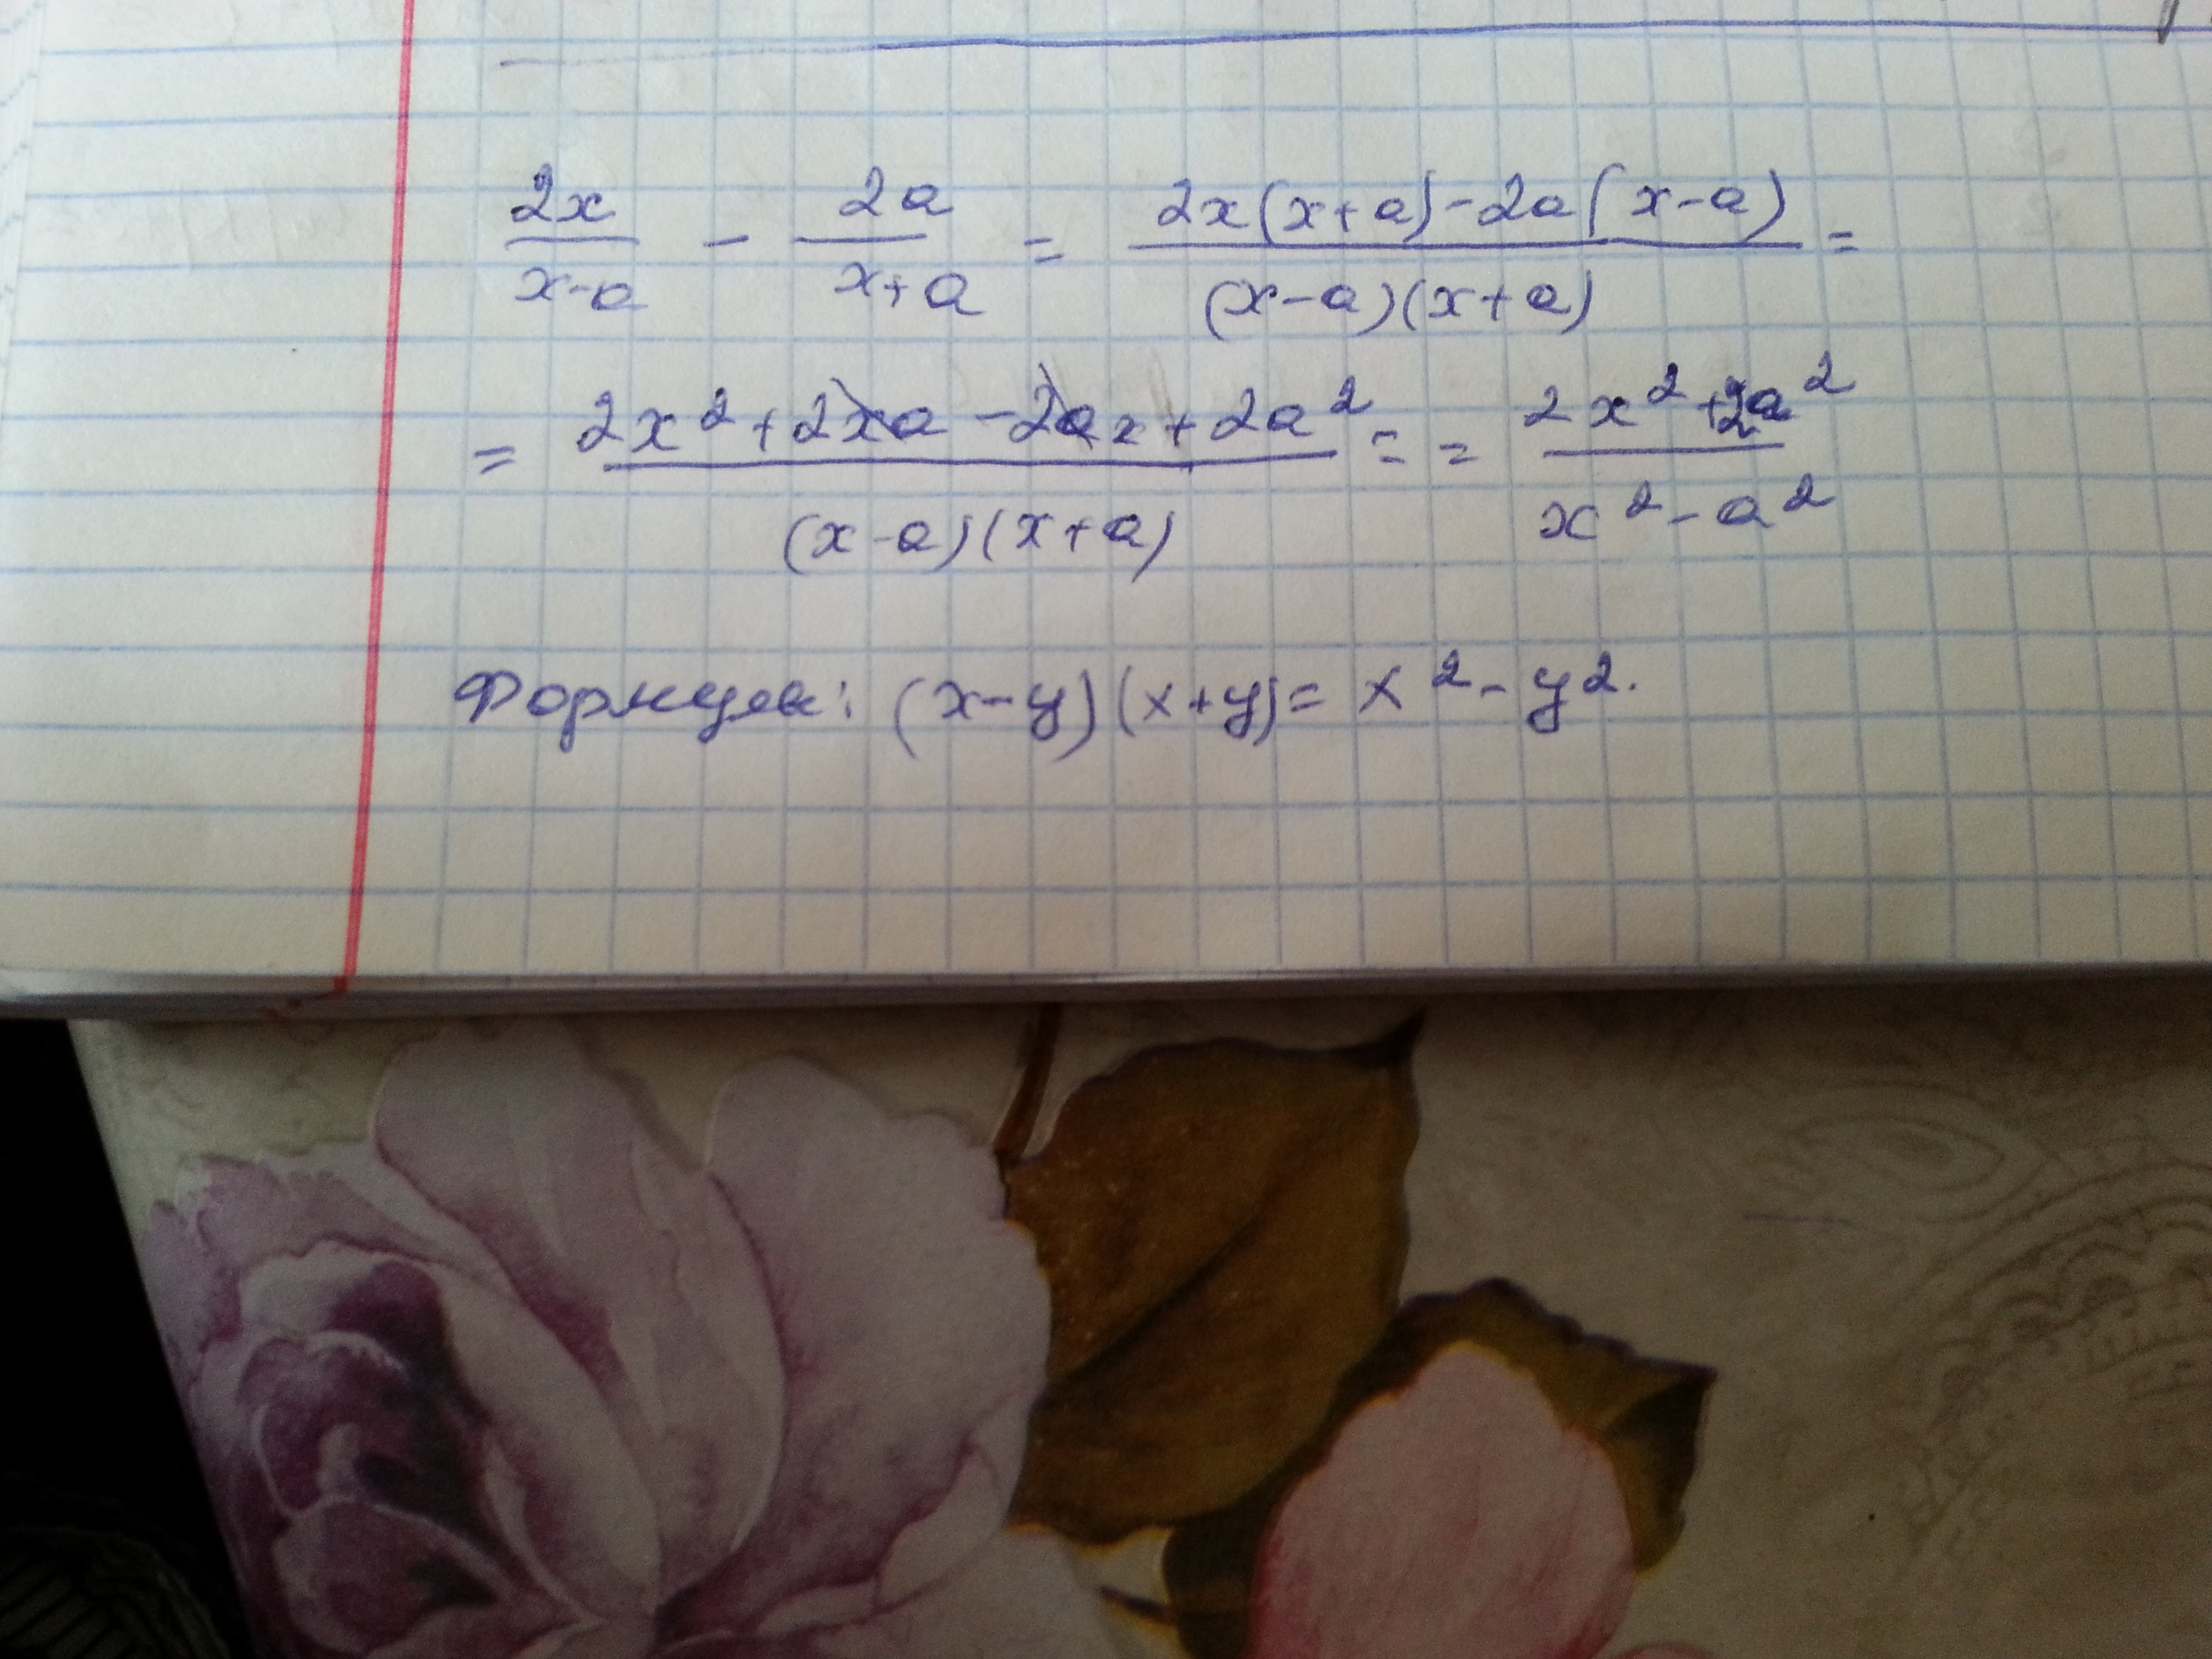 2x/(x-a) - 2a/(x+a) = (2x(x+a)-2a(x-a))/((x-a)(x+a)) =
= (2x²+2xa-2ax+2a²)/((x-a)(x+a)) = = (2x²+2a²)/(x²-a²)
Формула: (x-y)(x+y)=x²-y².